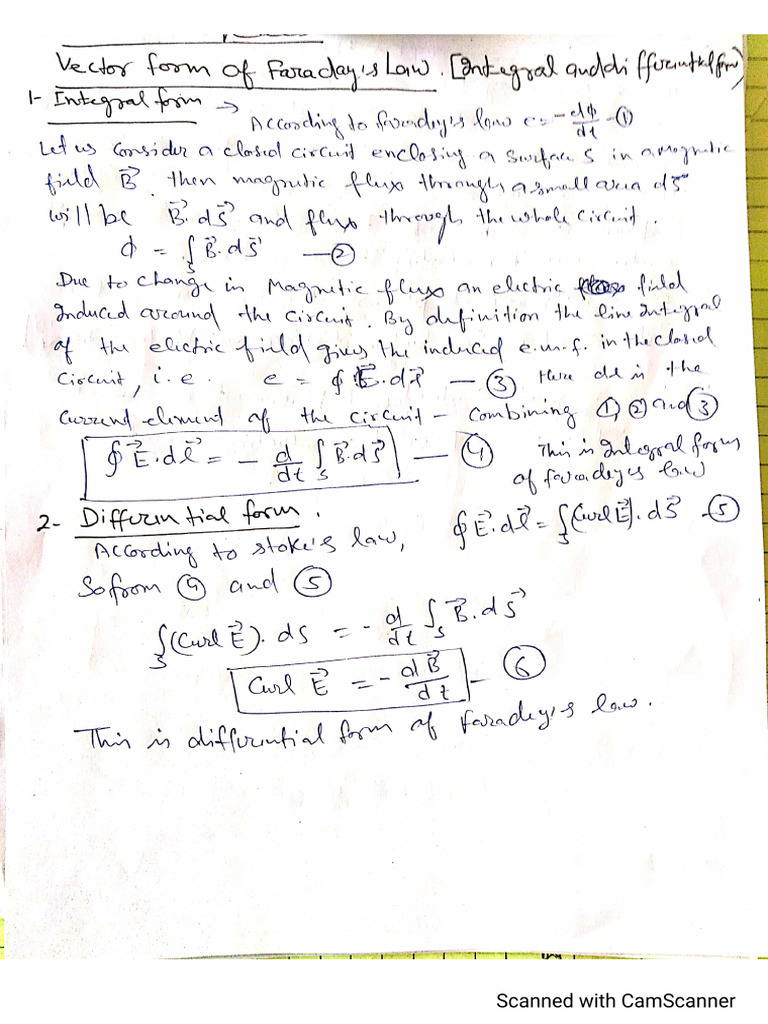 Vector form of Faraday's Law. [Integral and differential form]
1- Integral form → According to faraday's law e = -dϕ/dt -①
Let us consider a closed circuit enclosing a surface S in a magnetic
field B⃗ then magnetic flux through a small area dS⃗
will be B⃗.dS⃗ and flux through the whole circuit.
ϕ = ∫_S B⃗.dS⃗ —②
Due to change in Magnetic flux an electric field
Induced around the circuit. By definition the line Integral
of the electric field gives the induced e.m.f. in the closed
Circuit, i.e. e = ∮ E⃗.dl⃗ — ③ Here dl is the
current element of the circuit - combining ① ② and ③
∮ E⃗.dl⃗ = - d/dt ∫_S B⃗.dS⃗ — ④ This is Integral form
of faraday's law
2- Differential form.
According to stoke's law, ∮ E⃗.dl⃗ = ∫_S (Curl E⃗). dS⃗ -⑤
So from ④ and ⑤
∫_S (Curl E⃗). ds = - d/dt ∫_S B⃗.dS⃗
Curl E⃗ = - dB⃗/dt - ⑥
This is differential form of Faraday's law.
Scanned with CamScanner